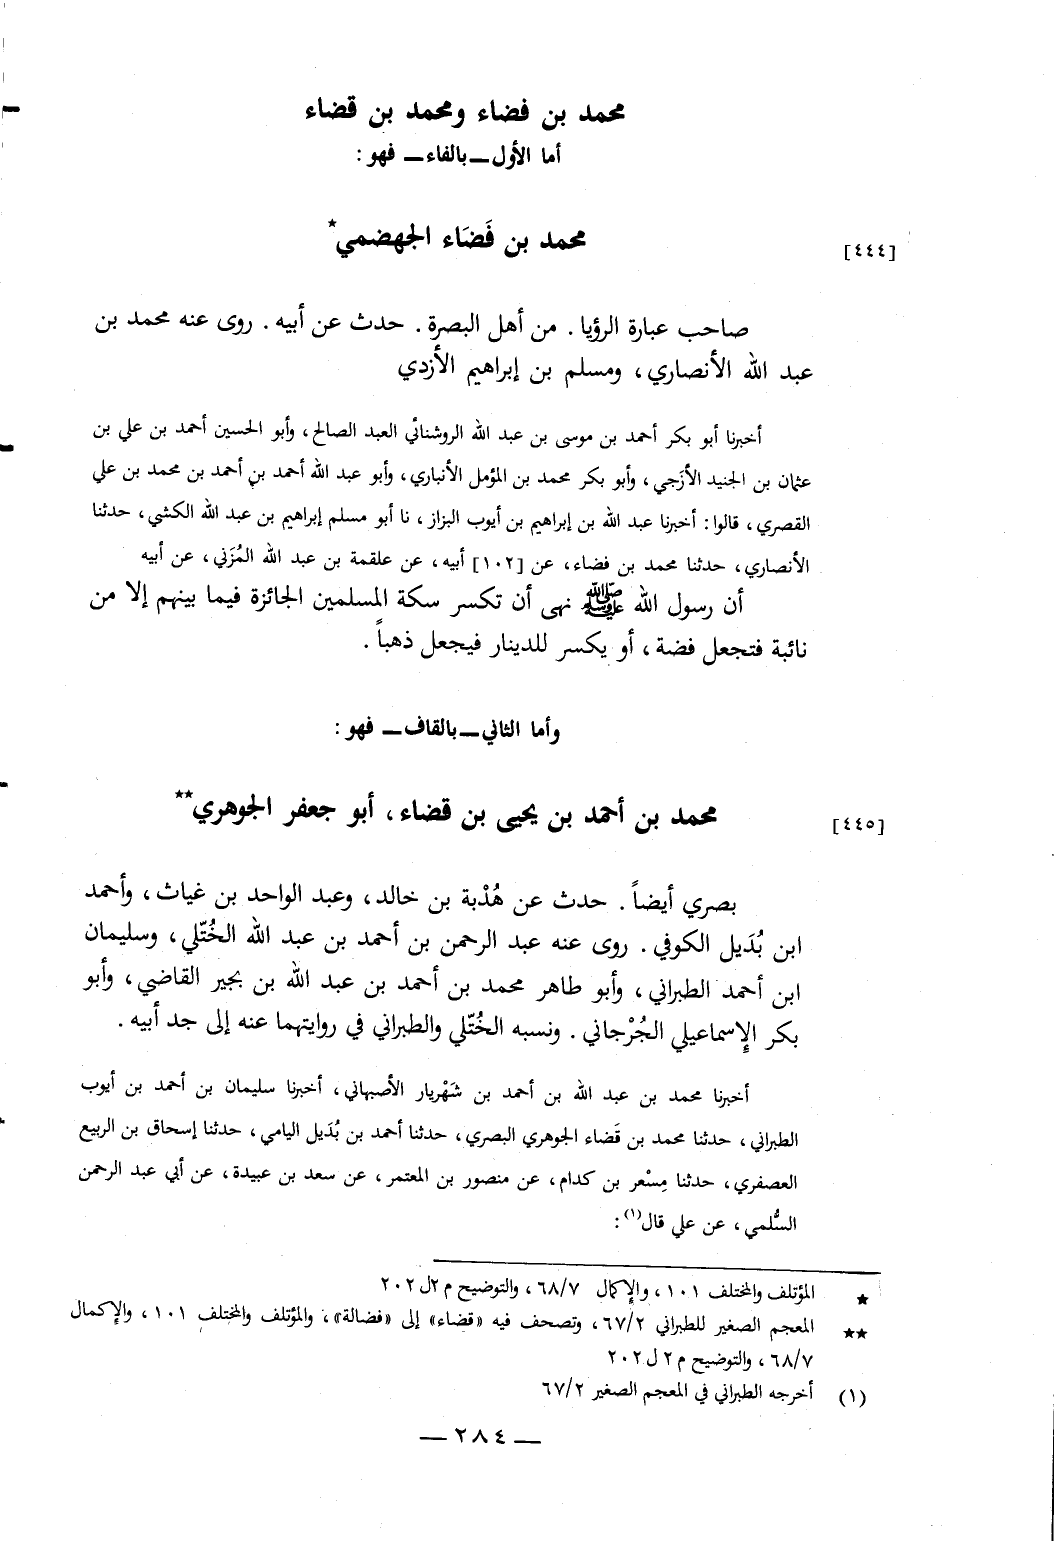 محمد بن فضاء ومحمد بن قضاء
أما الأول ــ بالفاء ــ فهو :
[٤٤٤] محمد بن فَضَاء الجهضمي*
صاحب عبارة الرؤيا . من أهل البصرة . حدث عن أبيه . روى عنه محمد بن
عبد الله الأنصاري ، ومسلم بن إبراهيم الأزدي
أخبرنا أبو بكر أحمد بن موسى بن عبد الله الروشنائي العبد الصالح ، وأبو الحسين أحمد بن علي بن
عثمان بن الجنيد الأزَجي ، وأبو بكر محمد بن المؤمل الأنباري ، وأبو عبد الله أحمد بن أحمد بن محمد بن علي
القصري ، قالوا : أخبرنا عبد الله بن إبراهيم بن أيوب البزاز ، نا أبو مسلم إبراهيم بن عبد الله الكشي ، حدثنا
الأنصاري ، حدثنا محمد بن فضاء ، عن [١٠٢] أبيه ، عن علقمة بن عبد الله المُزَني ، عن أبيه
أن رسول الله ﷺ نهى أن تكسر سكة المسلمين الجائزة فيما بينهم إلا من
نائبة فتجعل فضة ، أو يكسر للدينار فيجعل ذهباً .
وأما الثاني ــ بالقاف ــ فهو :
[٤٤٥] محمد بن أحمد بن يحيى بن قضاء ، أبو جعفر الجوهري**
بصري أيضاً . حدث عن هُدْبة بن خالد ، وعبد الواحد بن غياث ، وأحمد
ابن بُدَيل الكوفي . روى عنه عبد الرحمن بن أحمد بن عبد الله الخُتّلي ، وسليمان
ابن أحمد الطبراني ، وأبو طاهر محمد بن أحمد بن عبد الله بن بجير القاضي ، وأبو
بكر الإسماعيلي الجُرْجاني . ونسبه الختّلي والطبراني في روايتهما عنه إلى جد أبيه .
أخبرنا محمد بن عبد الله بن أحمد بن شَهْريار الأصبهاني ، أخبرنا سليمان بن أحمد بن أيوب
الطبراني ، حدثنا محمد بن قَضاء الجوهري البصري ، حدثنا أحمد بن بُدَيل اليامي ، حدثنا إسحاق بن الربيع
العصفري ، حدثنا مِسْعر بن كدام ، عن منصور بن المعتمر ، عن سعد بن عبيدة ، عن أبي عبد الرحمن
السُّلمي ، عن علي قال(١) :
★ المؤتلف والمختلف ١٠١ ، والإكمال ٦٨/٧ ، والتوضيح م ٢ل ٢٠٢
★★ المعجم الصغير للطبراني ٦٧/٢ ، وتصحف فيه «قضاء» إلى «فضالة» ، والمؤتلف والمختلف ١٠١ ، والإكمال
٦٨/٧ ، والتوضيح م ٢ ل ٢٠٢
(١) أخرجه الطبراني في المعجم الصغير ٦٧/٢
— ٢٨٤ —